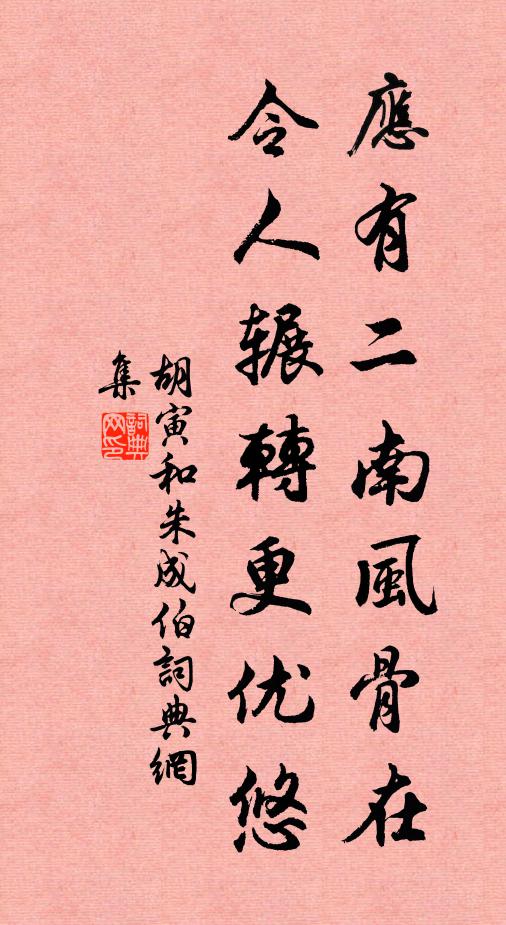 應有二南風骨在
令人辗轉更优悠
胡寅和朱成伯詞典網
集
詞典网印